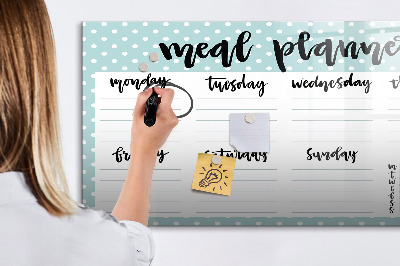 meal planne
monday tuesday wednesday th
friday saturday sunday
m t w t f s s